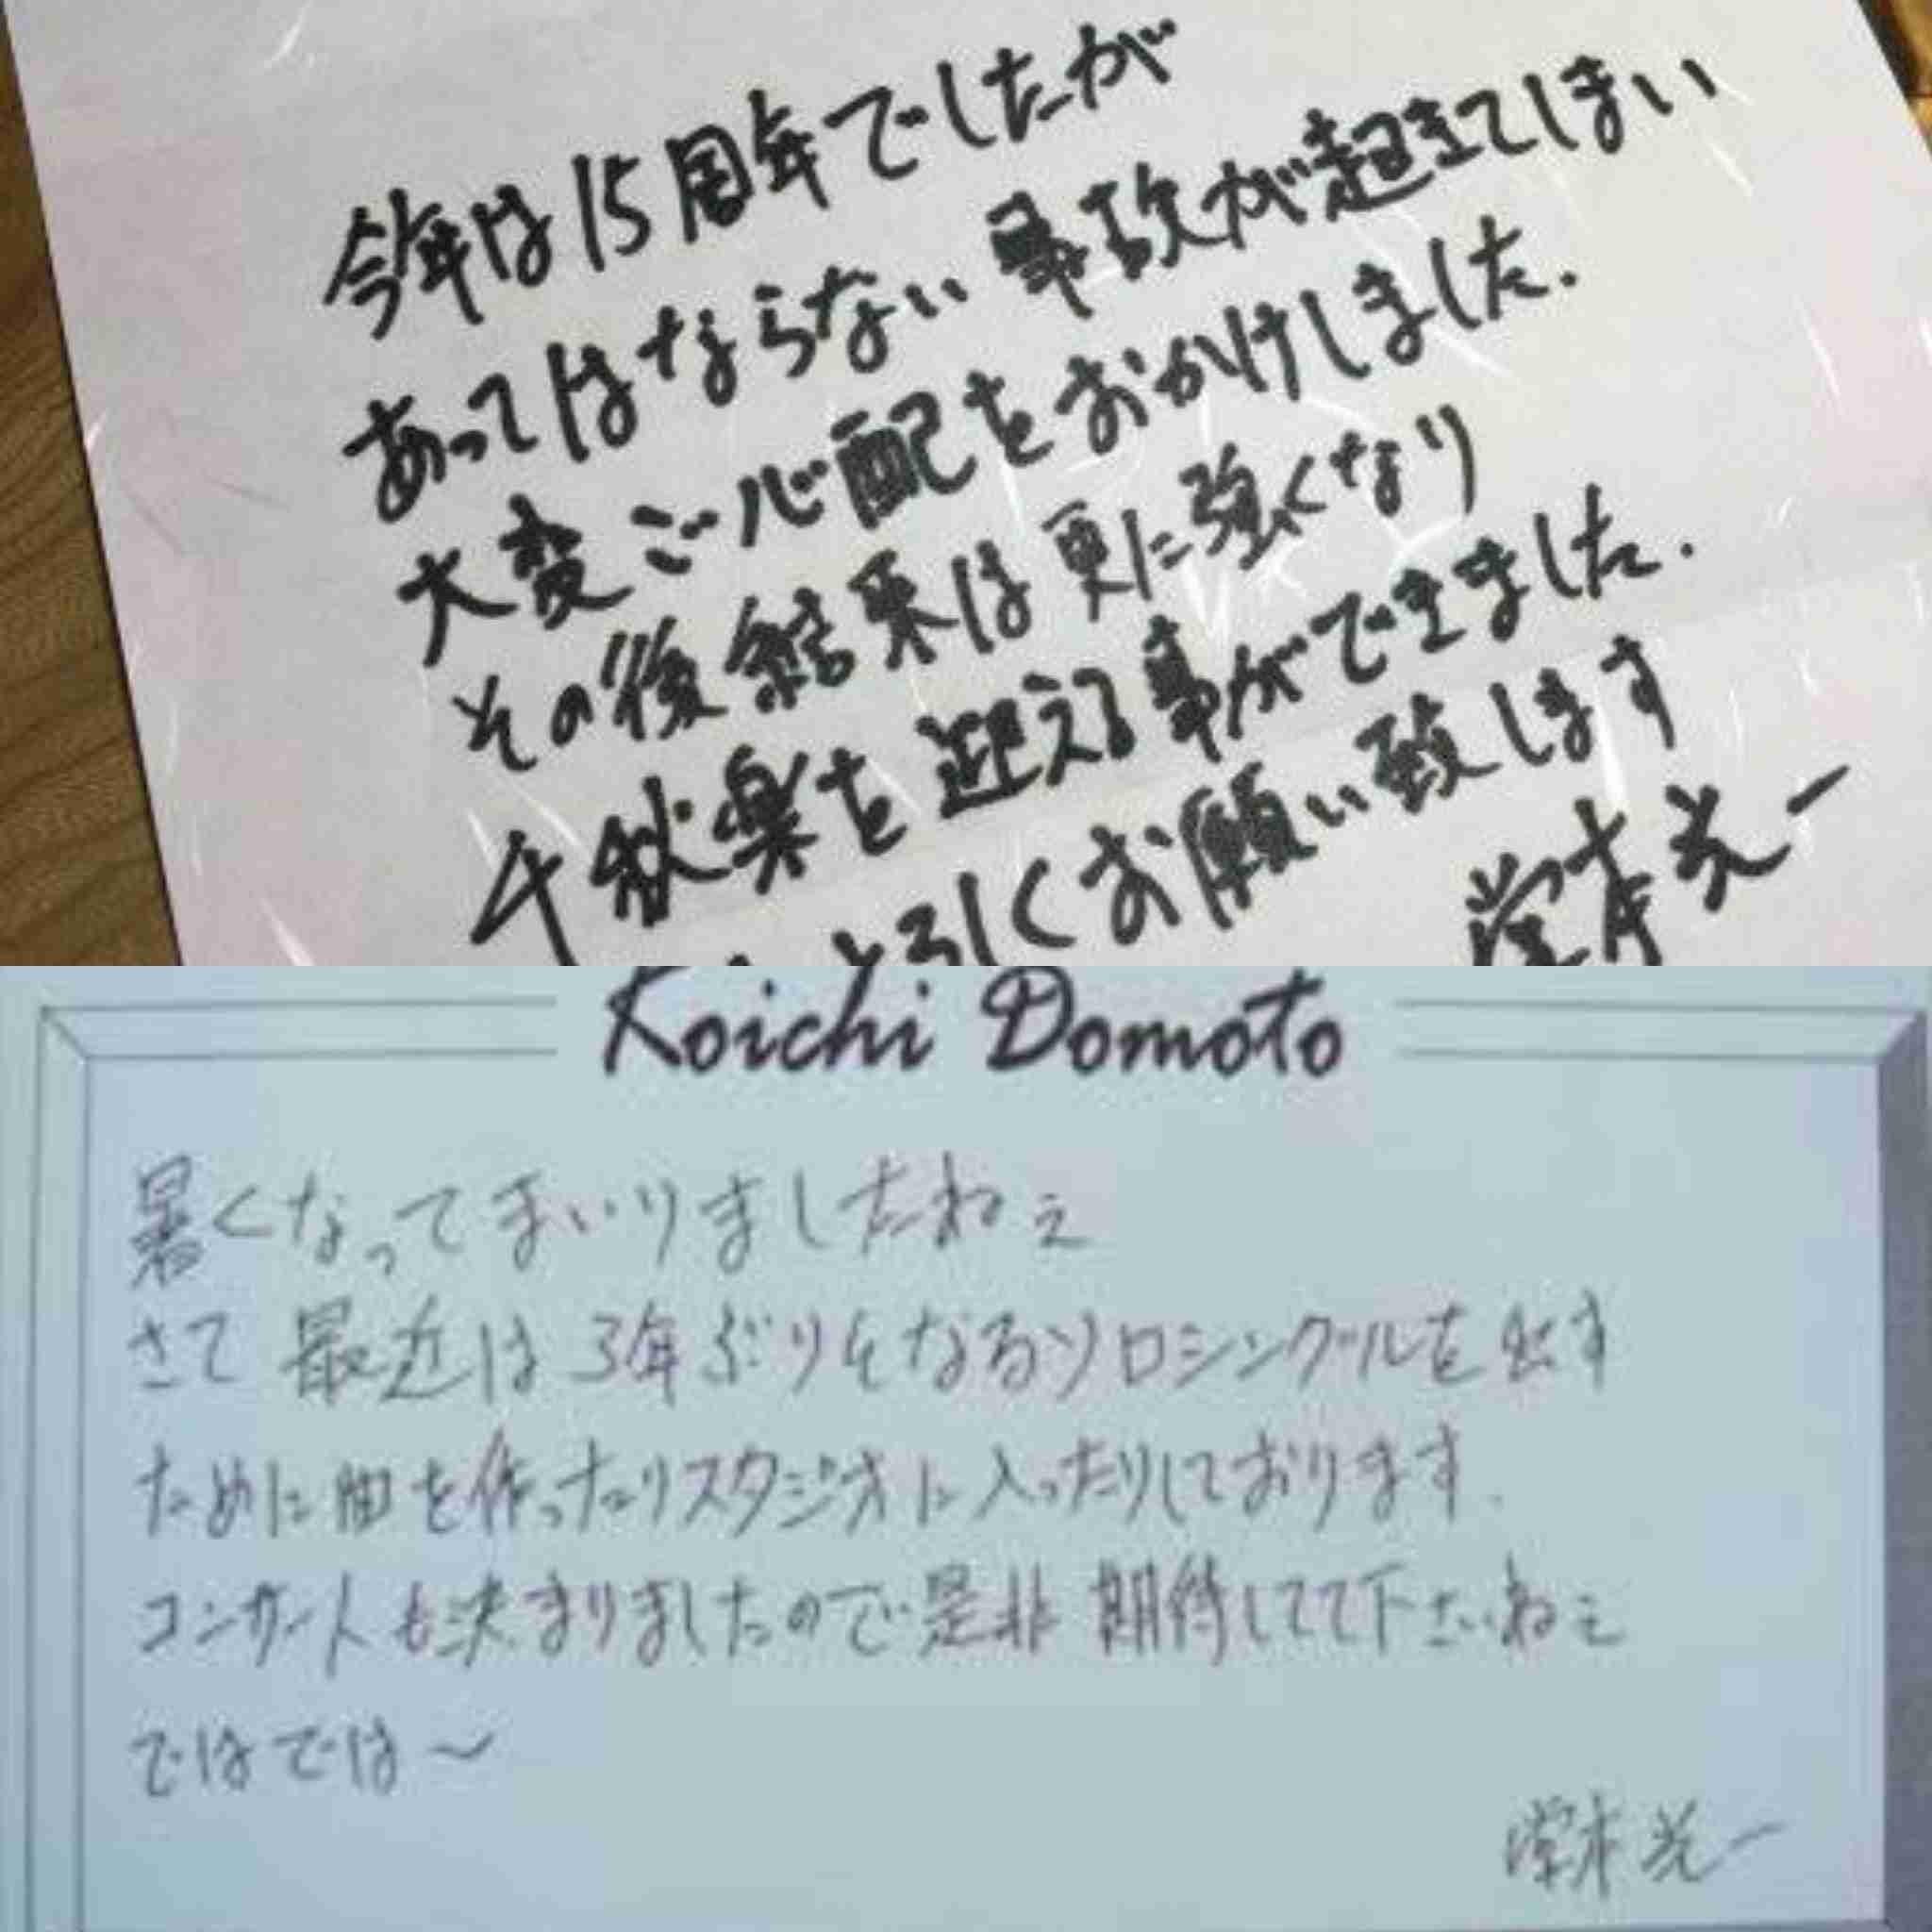 今年は15周年でしたが
あってはならない事故が起きてしまい
大変ご心配をおかけしました.
その後結果は更に強くなり
千秋楽を迎える事ができました.
よろしくお願い致します
堂本光一
Koichi Domoto
暑くなってまいりましたねぇ
さて 最近は 3年ぶりとなるソロシングルを出す
ために曲を作ったりスタジオに入ったりしております.
コンサートも決まりましたので是非 期待してて下さいねぇ
ではでは〜
堂本光一